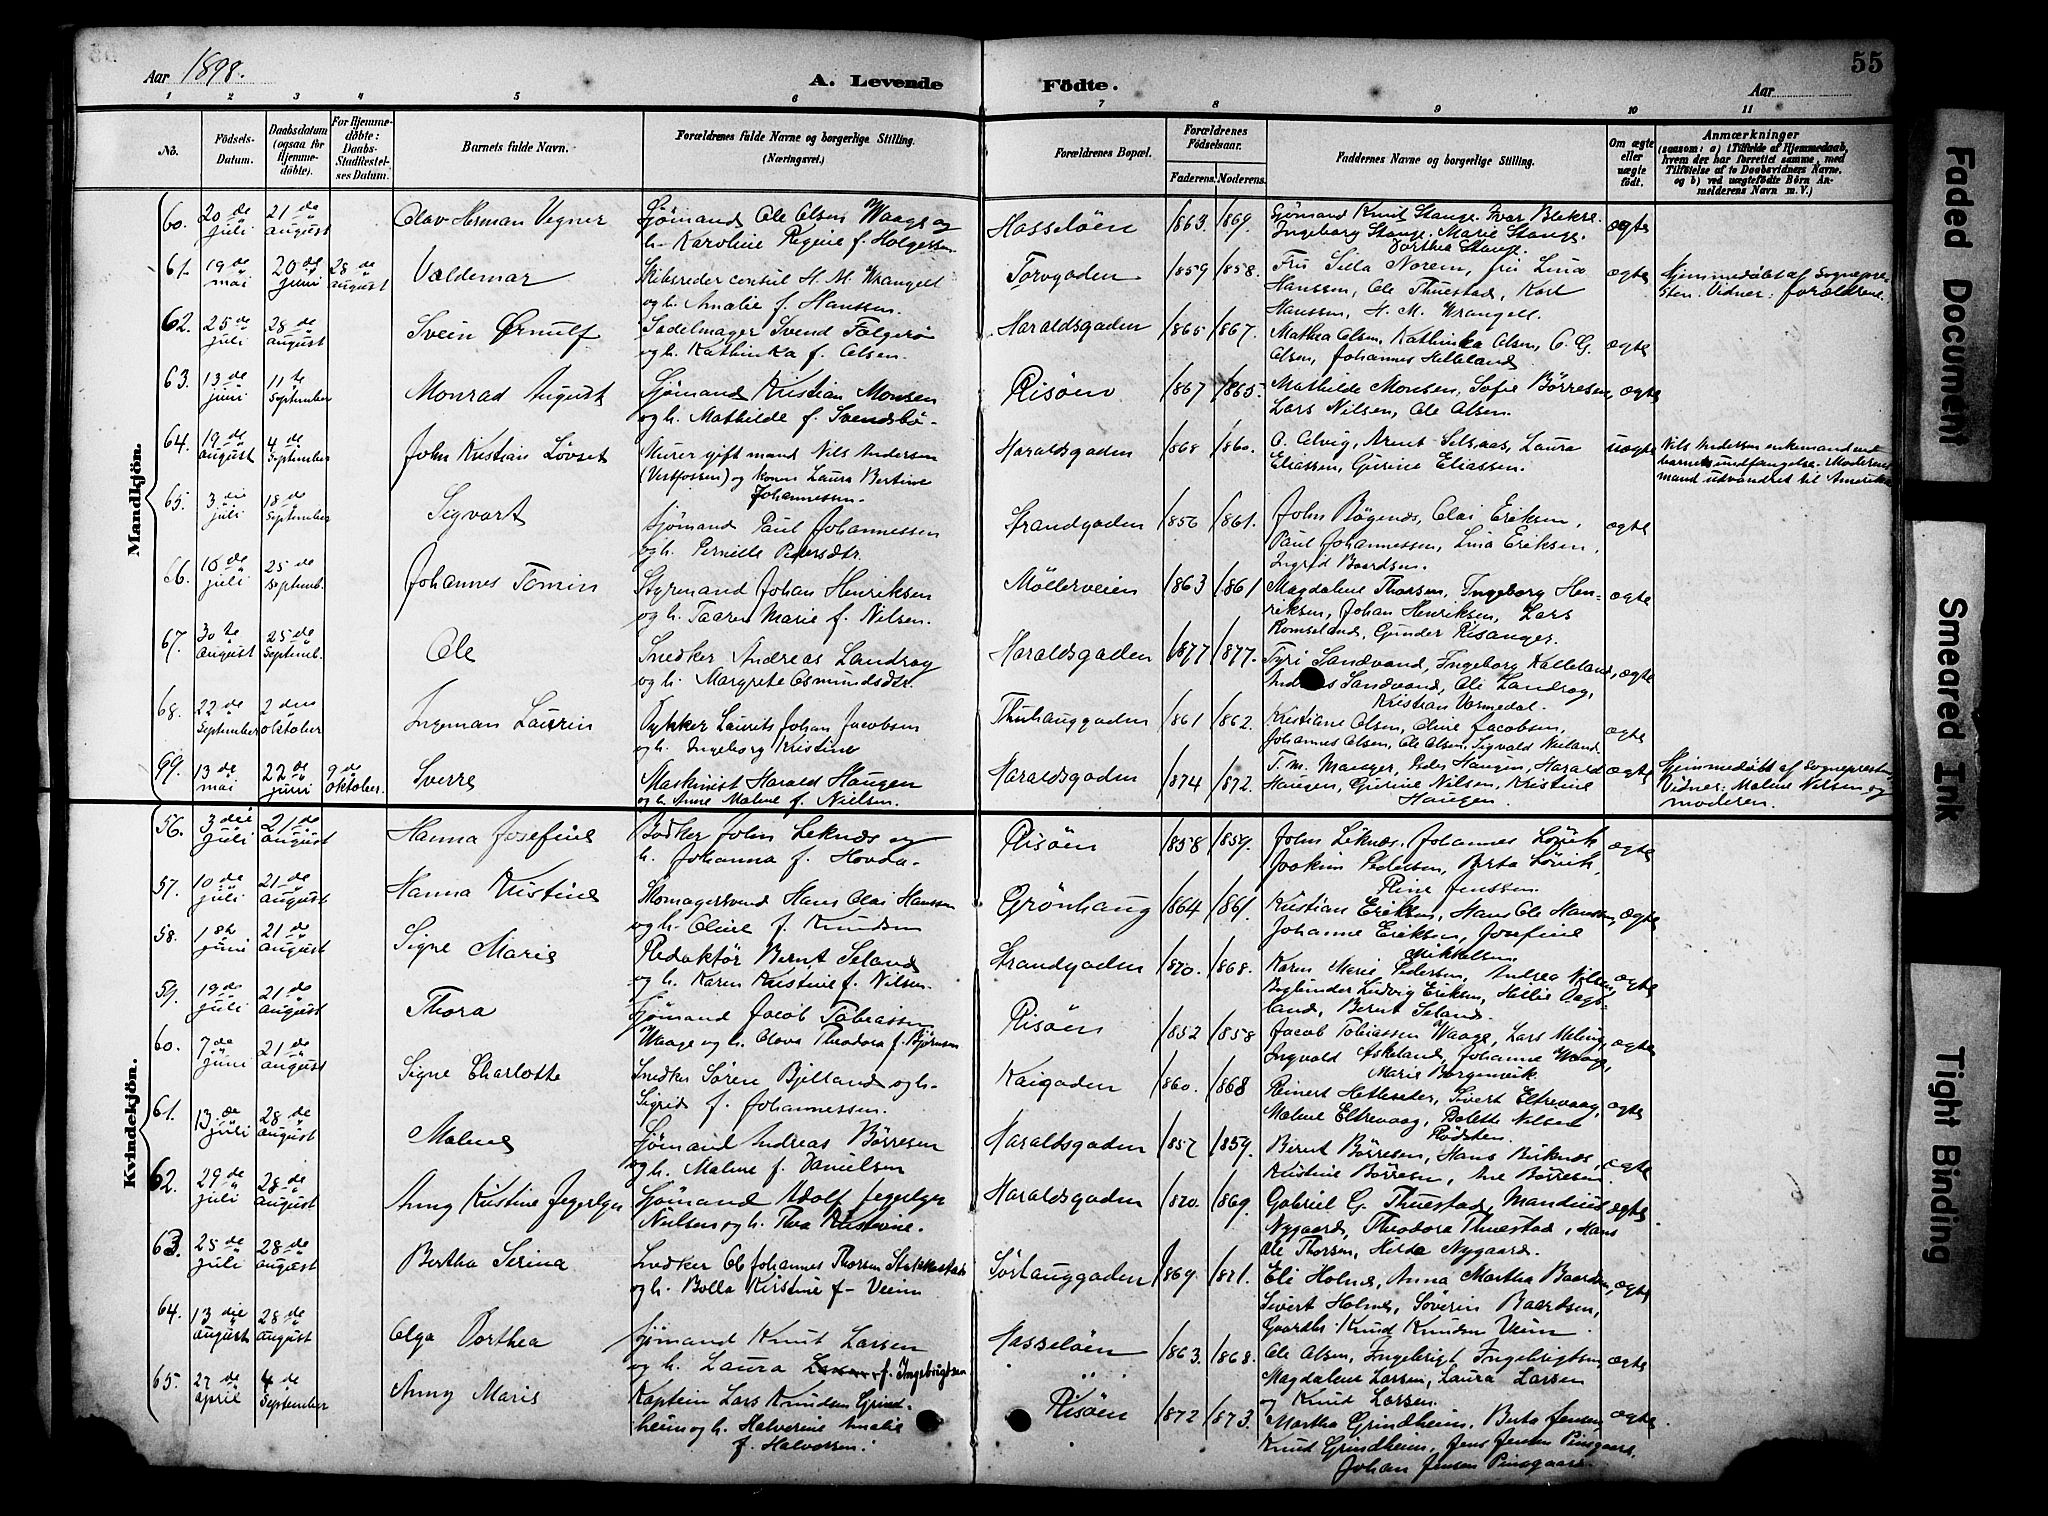 Aar 1898.
A. Levende Födte.
Aar
55
1 2 3 4 5 6 7 8 9 10 11
No.
Födsels-Datum.
Daabsdatum (ogsaa for Hjemme-döbte).
For Hjemme-döbte: Daabs-Stadfæstel-ses Datum.
Barnets fulde Navn.
Forældrenes fulde Navne og borgerlige Stilling. (Næringsvei.)
Forældrenes Bopæl.
Forældrenes Födselsaar.
Faderens. Moderens.
Faddernes Navne og borgerlige Stilling.
Om ægte eller uægte födt.
Anmærkninger
(saasom: a) i Tilfælde af Hjemmedaab, hvem der har forrettet samme, med Tilföielse af to Daabsvidners Navne, og b) ved uægtefödte Börn An-melderens Navn m. V.)
Mandkjön.
60. 20de juli 21de august Olav Herman Vegner Sjømand Ole Olsen Waage og h. Karoline Regine f. Holgersen Hasseløen 1863. 1869. Sjømand Knut Stange. Ivar Blekse. Ingeborg Stange. Marie Stange. Dorthea Stange. ægte
61. 19de mai 20de juni 28de august Valdemar Skibsreder consul H. M. Wrangell og h. Amalie f. Hanssen. Torvgaden 1859 1858. Fru Silla Norem, fru Lina Hanssen, Ole Thuestad, Karl Hanssen, H. M. Wrangell. ægte Hjemmedøbt af Sognepresten. Vidner: forældrene.
62. 25de juli 28de august Svein Ørnulf Sadelmager Svend Falgerø og h. Kathinka f. Olsen. Haraldsgaden 1865 1867. Mathea Olsen, Kathinka Olsen, C. G. Olsen, Johannes Helleland ægte
63. 13de juni 11te September Monrad August Sjømand Kristian Monsen og h. Mathilde f. Svendsbø. Risöen 1867 1865. Mathilde Monsen, Sofie Börresen, Lars Nilsen, Ole Olsen. ægte
64. 19de august 4de September John Kristian Lövset Murer gift mand Nils Andersen (Vestfossen) og kone Laura Bertine Johannessen. Haraldsgaden 1868 1860. O. Alvig, Arnt Selsaas, Laura Eliassen, Gurine Eliassen. uægte Nils Andersen enkemand ved barnets undfangelse. Moderens mand udvandret til Amerika
65. 3die juli 18de September Sigvart Sjømand Paul Johannessen og h. Pernille Pedersdtr. Strandgaden 1856 1861. John Bögenes, Olai Eriksen, Paul Johannessen, Lina Eriksen, Ingrid Baardsen. ægte
66. 16de juli 25de Septemb. Johannes Tomin Styrmand Johan Henriksen og h. Taaren Marie f. Nilsen. Möllerveien 1863 1861 Magdalene Thorsen, Ingeborg Henriksen, Johan Henriksen, Lars Romseland, Gunder Risanger. ægte
67. 30te august 25de Septemb. Ole Snedker Andreas Landrog og h. Margrete Osmundsdtr. Haraldsgaden 1877 1877. Tyri Sandvand, Ingeborg Kalleland, Sandvand, Ole Landrog, Kristian Vormedal. ægte
68. 22de September 2den oktober Ingman Laurin Dykker Laurits Johan Jacobsen og h. Ingeborg Kristine Thuhauggaden 1861 1862. Kristiane Olsen, Oline Jacobsen, Johannes Olsen, Ole Olsen, Sigvald Nieland. ægte
69. 13de mai 22de juni 9de oktober. Sverre Maskinist Harald Haugen og h. Anne Malene f. Nielsen. Haraldsgaden 1874 1872. T. M. Manger, Peder Haugen, Harald Haugen, Gurine Nilsen, Kristine Haugen. ægte Hjemmedöbt af sognepresten, Vidner: Malene Nilsen og moderen.
Kvindekjön.
56. 3die juli 21de august Hanna Josefine Bödker John Leknæs og h. Johanna f. Hovda. Risöen 1858 1859. John Leknæs, Johannes Lövik, Joakim Pedersen, Berta Lövik, Rine Jenssen. ægte
57. 10de juli 21de august Hanna Kristine Skomagersvend Hans Olai Hanssen og h. Oline f. Knudsen Grönhaug 1864 1861. Kristian Eriksen, Hans Ole Hanssen, Johanne Eriksen, Josefine Mikkelsen ægte
58. 18de juni 21de august Signe Marie Redaktör Bernt Seland og h. Karen Kristine f. Nilsen. Strandgaden 1870. 1868. Karen Marie Pedersen, Andrea Nilsen, Buglunder Ludvig Eriksen, Hellie Oagsland, Bernt Seland. ægte
59. 19de juli 21de august Thora Sjømand Jacob Tobiassen Waage og h. Olava Theodora f. Björnsen Risöen 1852 1858 Jacob Tobiassen Waage, Lars Meling, Ingvald Askeland, Johanne Waage, Marie Borgenvik. ægte
60. 7de juni 21de august Signe Charlotte Snedker Sören Bjelland og h. Sigrid f. Johannessen. Kaigaden 1860. 1868 Reinert Hetleseter, Sivert Eltrevaag, Malene Eltrevaag, Bolette Nilsen Rödsten. ægte
61. 13de juli 28de august Malene Sjömand Andreas Börresen og h. Malene f. Danielsen Haraldsgaden 1857 1859. Bernt Börresen, Hans Birknes, Kristine Börresen, Ane Börresen. ægte
62. 29de juli 28de august Anny Kristine Jegerlyn Sjömand Adolf Jegerlyn Nielsen og h. Thea Kristine. Haraldsgaden 1870. 1869. Gabriel G. Thuestad, Mandius Nygaard, Theodora Thuestad, Hans Ole Thorsen, Helda Nygaard. ægte
63. 25de juli 28de august Bertha Serina Snedker Ole Johannes Thorsen og h. Bolla Kirstine f. Veim Sörhauggaden 1869. 1871. Eli Holmes, Anna Martha Baardsen, Sivert Holmes, Söverin Baardsen, Gaardbr. Knud Knudsen Veim. ægte
64. 13die august 28de august Olga Dorthea Sjömand Knut Larsen og h. Laura f. Ingebrigtsen Hasselöen 1863. 1868. Ole Olsen, Ingebrigt Ingebrigtsen, Magdalene Larsen, Laura Larsen og Knud Larsen. ægte
65. 27de april 4de September Anny Marie Kaptein Lars Knudsen Grindheim og h. Halverine Amalie f. Halvorsen. Risöen 1872 1873. Martha Grindheim, Berta Jensen, Knud Grindheim, Jens Jensen Pinsgaard, Johan Jensen Pinsgaard. ægte
Faded Document
Smeared Ink
Tight Binding